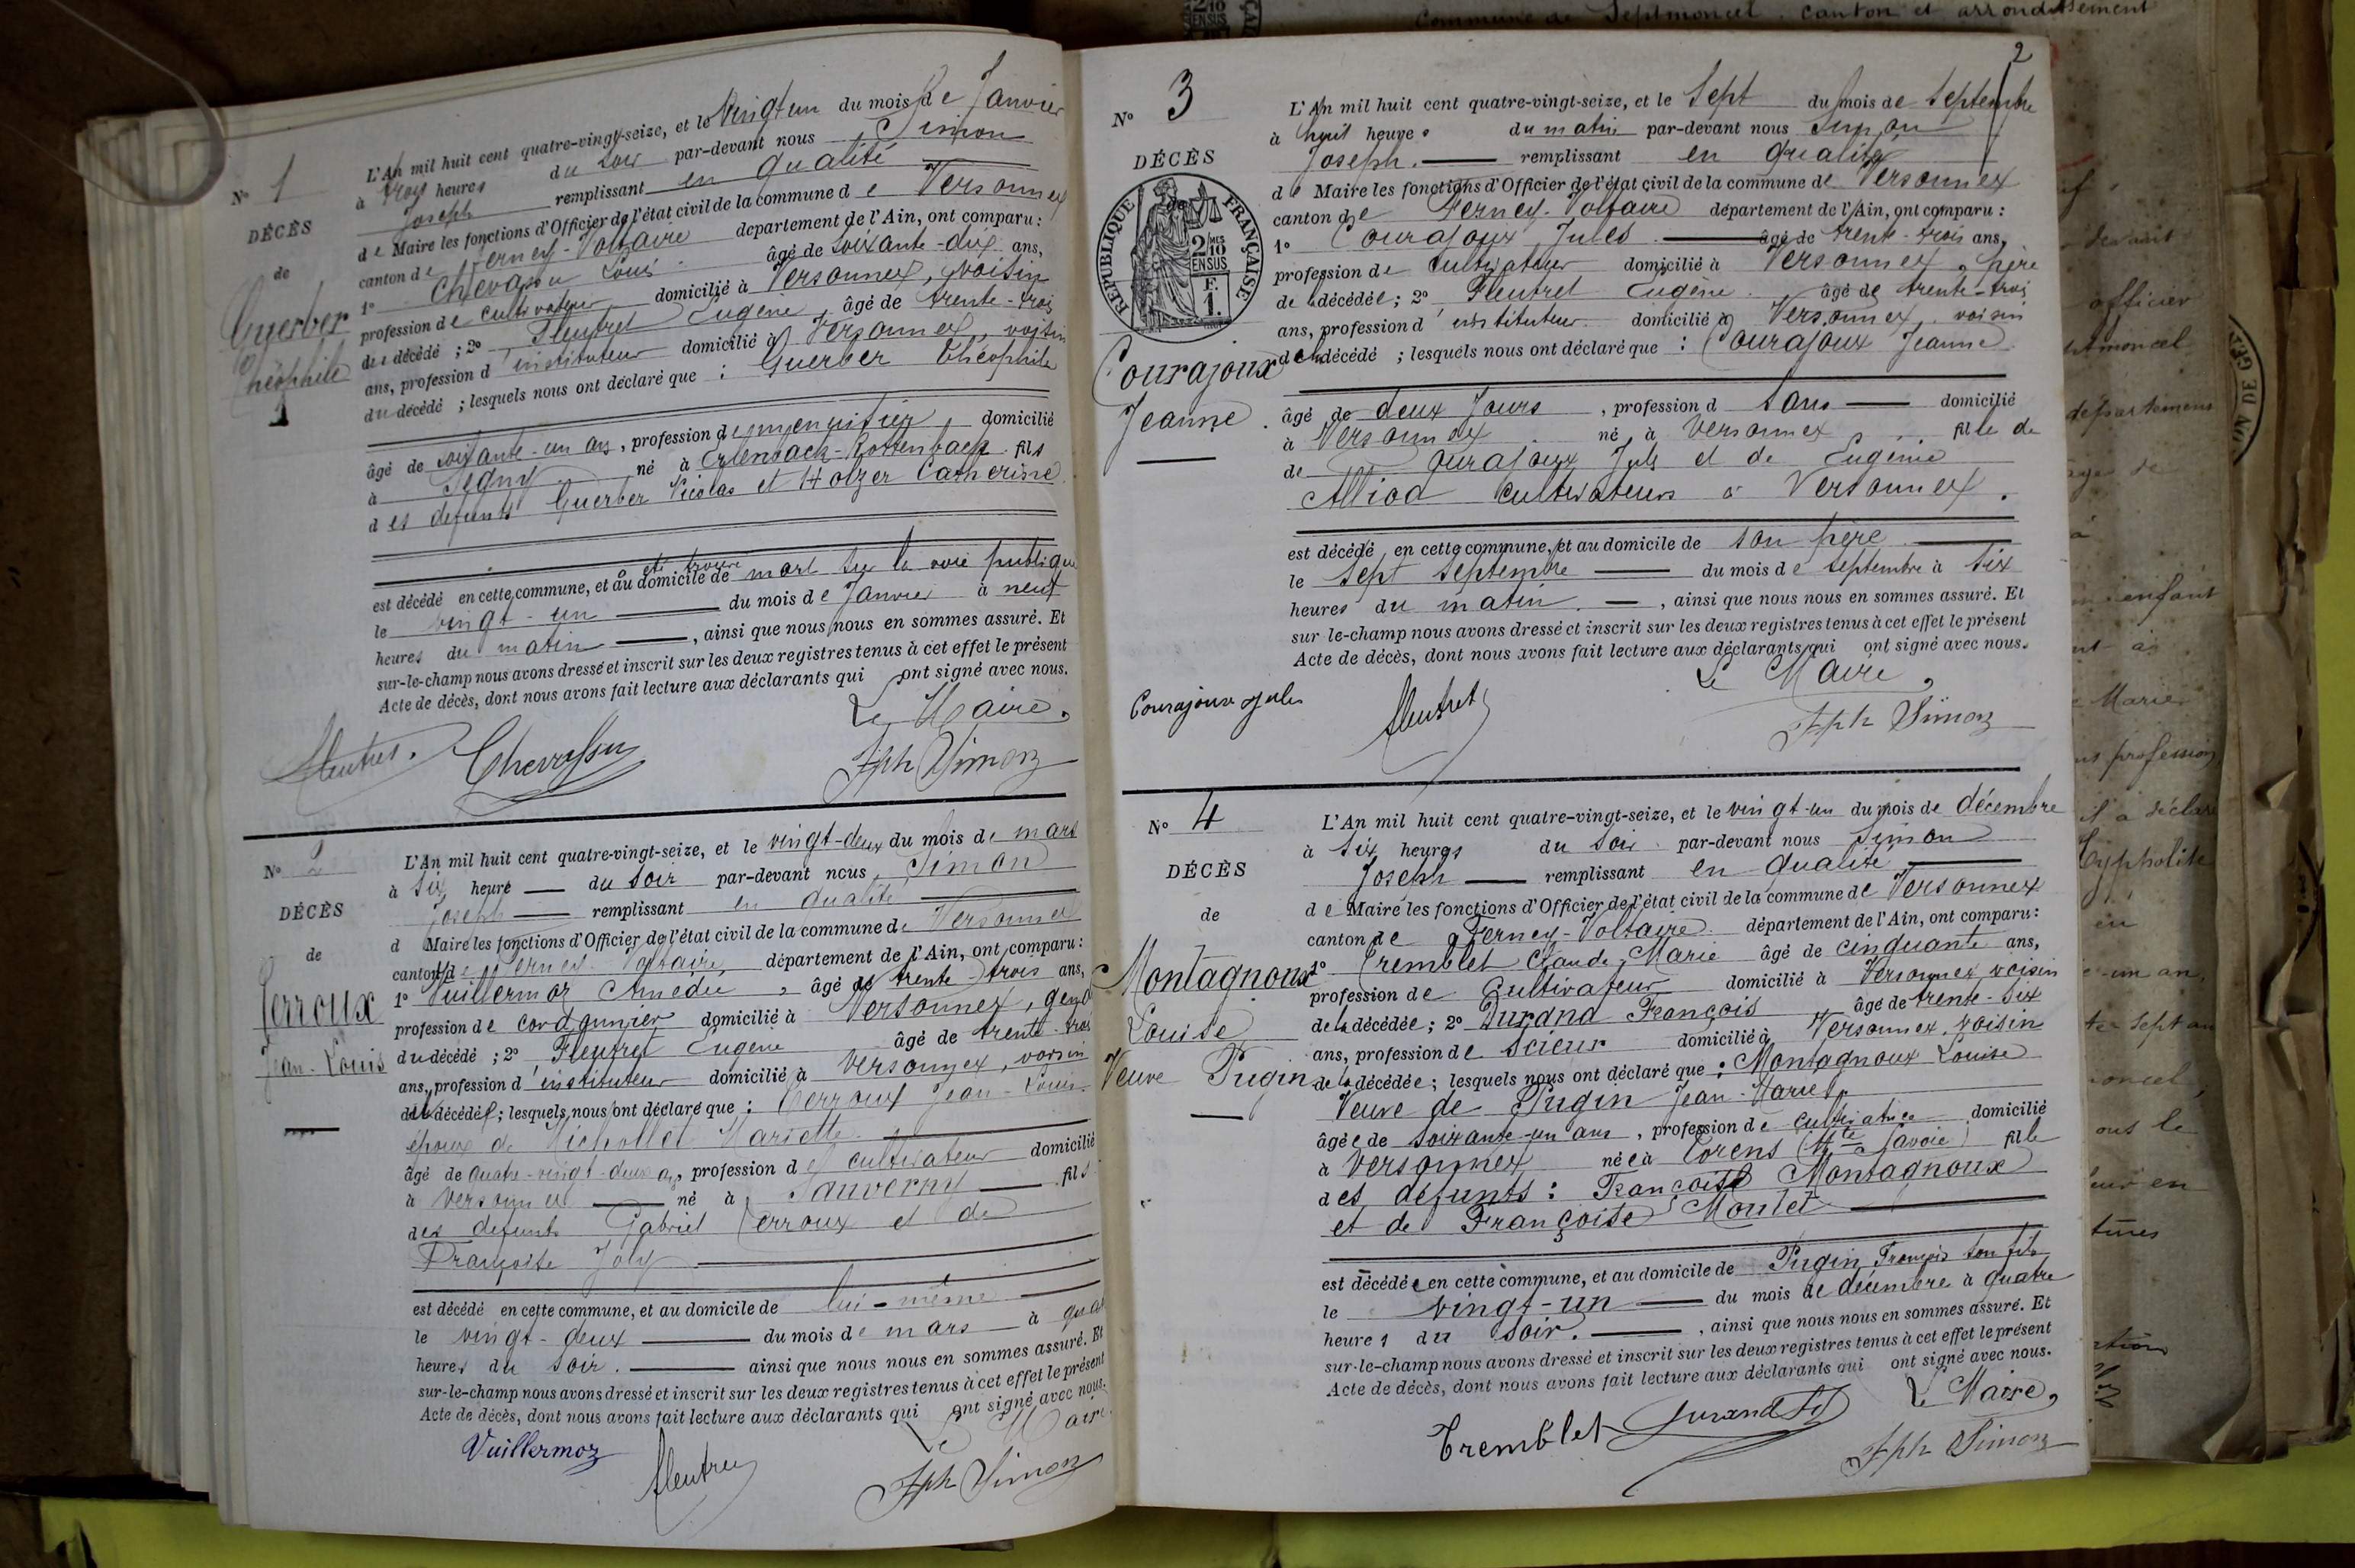 N° 1
DÉCÈS
de
Guerber
Théophile
1
L'An mil huit cent quatre-vingt-seize, et le vingt un du mois de Janvier
à trois heures du soir par-devant nous Simon
Joseph remplissant en qualité
de Maire les fonctions d'Officier de l'état civil de la commune de Versonnex
canton de Ferney-Voltaire département de l'Ain, ont comparu :
1° Chevassu Louis âgé de soixante-dix ans,
profession de cultivateur domicilié à Versonnex, voisin
du décédé ; 2° Fleutret Eugène, âgé de trente-trois
ans, profession d'instituteur domicilié à Versonnex, voisin
du décédé ; lesquels nous ont déclaré que : Guerber Théophile
âgé de soixante-un ans, profession de menuisier, domicilié
à Segny né à fils
des défunts Guerber Nicolas et Holzer Catherine.
est décédé en cette commune, et au domicile de a été trouvé mort sur la voie publique
le vingt-un du mois de Janvier à neuf
heures du matin, ainsi que nous nous en sommes assuré. Et
sur-le-champ nous avons dressé et inscrit sur les deux registres tenus à cet effet le présent
Acte de décès, dont nous avons fait lecture aux déclarants qui ont signé avec nous.
Le Maire,
Fleutret Chevassu Jph Simon
N° 2
DÉCÈS
de
Perroux
Jean-Louis
L'An mil huit cent quatre-vingt-seize, et le vingt-deux du mois de mars
à six heure du soir par-devant nous, Simon
Joseph remplissant en qualité
d Maire les fonctions d'Officier de l'état civil de la commune de Versonnex
canton de Ferney-Voltaire, département de l'Ain, ont comparu :
1° Vuillermoz Amédée, âgé de trente-trois ans,
profession de cordonnier domicilié à Versonnex, gendre
du décédé ; 2° Fleutret Eugène âgé de trente-trois
ans, profession d'instituteur domicilié à Versonnex, voisin
du décédé ; lesquels nous ont déclaré que : Perroux Jean-Louis
époux de Mariette
âgé de quatre-vingt-deux ans, profession de cultivateur domicilié
à Versonnex né à Sauverny fils
des défunts Gabriel Perroux et de
Françoise Joly
est décédé en cette commune, et au domicile de lui-même
le vingt-deux du mois de mars à quatre
heures du soir. ainsi que nous nous en sommes assuré. Et
sur-le-champ nous avons dressé et inscrit sur les deux registres tenus à cet effet le présent
Acte de décès, dont nous avons fait lecture aux déclarants qui ont signé avec nous.
Le Maire,
Vuillermoz Fleutret Jph Simon
2
N° 3
DÉCÈS
RÉPUBLIQUE FRANÇAISE
2/10 MES
EN SUS
F.
1.
Courajoux
Jeanne.
L'An mil huit cent quatre-vingt-seize, et le Sept du mois de Septembre
à huit heures du matin par-devant nous Simon
Joseph. remplissant en qualité
de Maire les fonctions d'Officier de l'état civil de la commune de Versonnex
canton de Ferney-Voltaire département de l'Ain, ont comparu :
1° Courajoux Jules âgé de trente-trois ans,
profession de cultivateur domicilié à Versonnex, père
de la décédée ; 2° Fleutret Eugène. âgé de trente-trois
ans, profession d'instituteur domicilié à Versonnex, voisin
de la décédé ; lesquels nous ont déclaré que : Courajoux Jeanne.
âgé de deux jours, profession d sans domicilié
à Versonnex né à Versonnex fille de
de Courajoux Jules et de Eugénie
Alliod cultivateurs à Versonnex.
est décédé en cette commune, et au domicile de son père
le Sept Septembre du mois de Septembre à six
heures du matin. , ainsi que nous nous en sommes assuré. Et
sur-le-champ nous avons dressé et inscrit sur les deux registres tenus à cet effet le présent
Acte de décès, dont nous avons fait lecture aux déclarants qui ont signé avec nous.
Le Maire,
Courajoux Jules Fleutret Jph Simon
N° 4
DÉCÈS
de
Montagnoux
Louise
Veuve Pugin
L'An mil huit cent quatre-vingt-seize, et le vingt-un du mois de décembre
à six heures du soir par-devant nous Simon
Joseph remplissant en qualité
de Maire les fonctions d'Officier de l'état civil de la commune de Versonnex
canton de Ferney-Voltaire. département de l'Ain, ont comparu :
1° Tremblet Claude, Marie âgé de cinquante ans,
profession de Cultivateur domicilié à Versonnex voisin
de la décédée ; 2° Durand François âgé de trente-six
ans, profession de Scieur domicilié à Versonnex, voisin
de la décédée ; lesquels nous ont déclaré que : Montagnoux Louise
Veuve de Pugin Jean-Marie,
âgée de soixante-un ans, profession de cultivatrice domicilié
à Versonnex née à Torens (Hte Savoie) fille
des défunts : François Montagnoux
et de Françoise Moulet
est décédée en cette commune, et au domicile de Pugin François son fils
le vingt-un du mois de décembre à quatre
heures du soir. , ainsi que nous nous en sommes assuré. Et
sur-le-champ nous avons dressé et inscrit sur les deux registres tenus à cet effet le présent
Acte de décès, dont nous avons fait lecture aux déclarants qui ont signé avec nous.
Le Maire,
Tremblet Durand Jph Simon
Commune de Septmoncel. canton et arrondissement
devant
officier
département
enfant
Marie
profession
il a déclaré
un an,
sept an
ous le